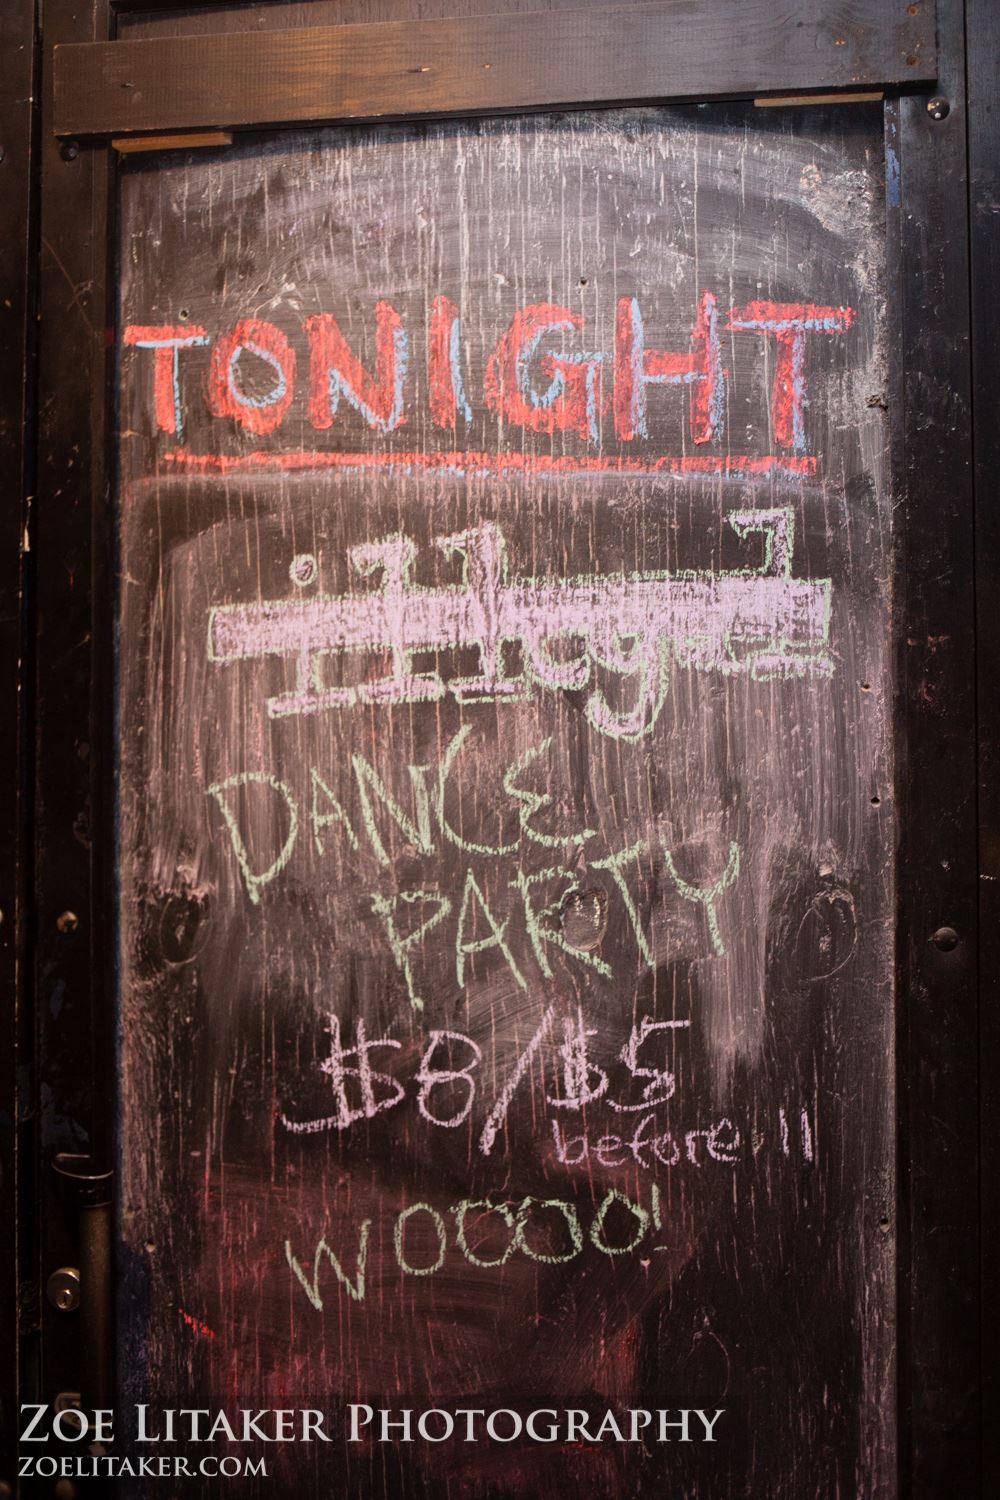 TONIGHT
illegal
DANCE
PARTY
$8/$5
before 11
WOOOO!
ZOE LITAKER PHOTOGRAPHY
ZOELITAKER.COM